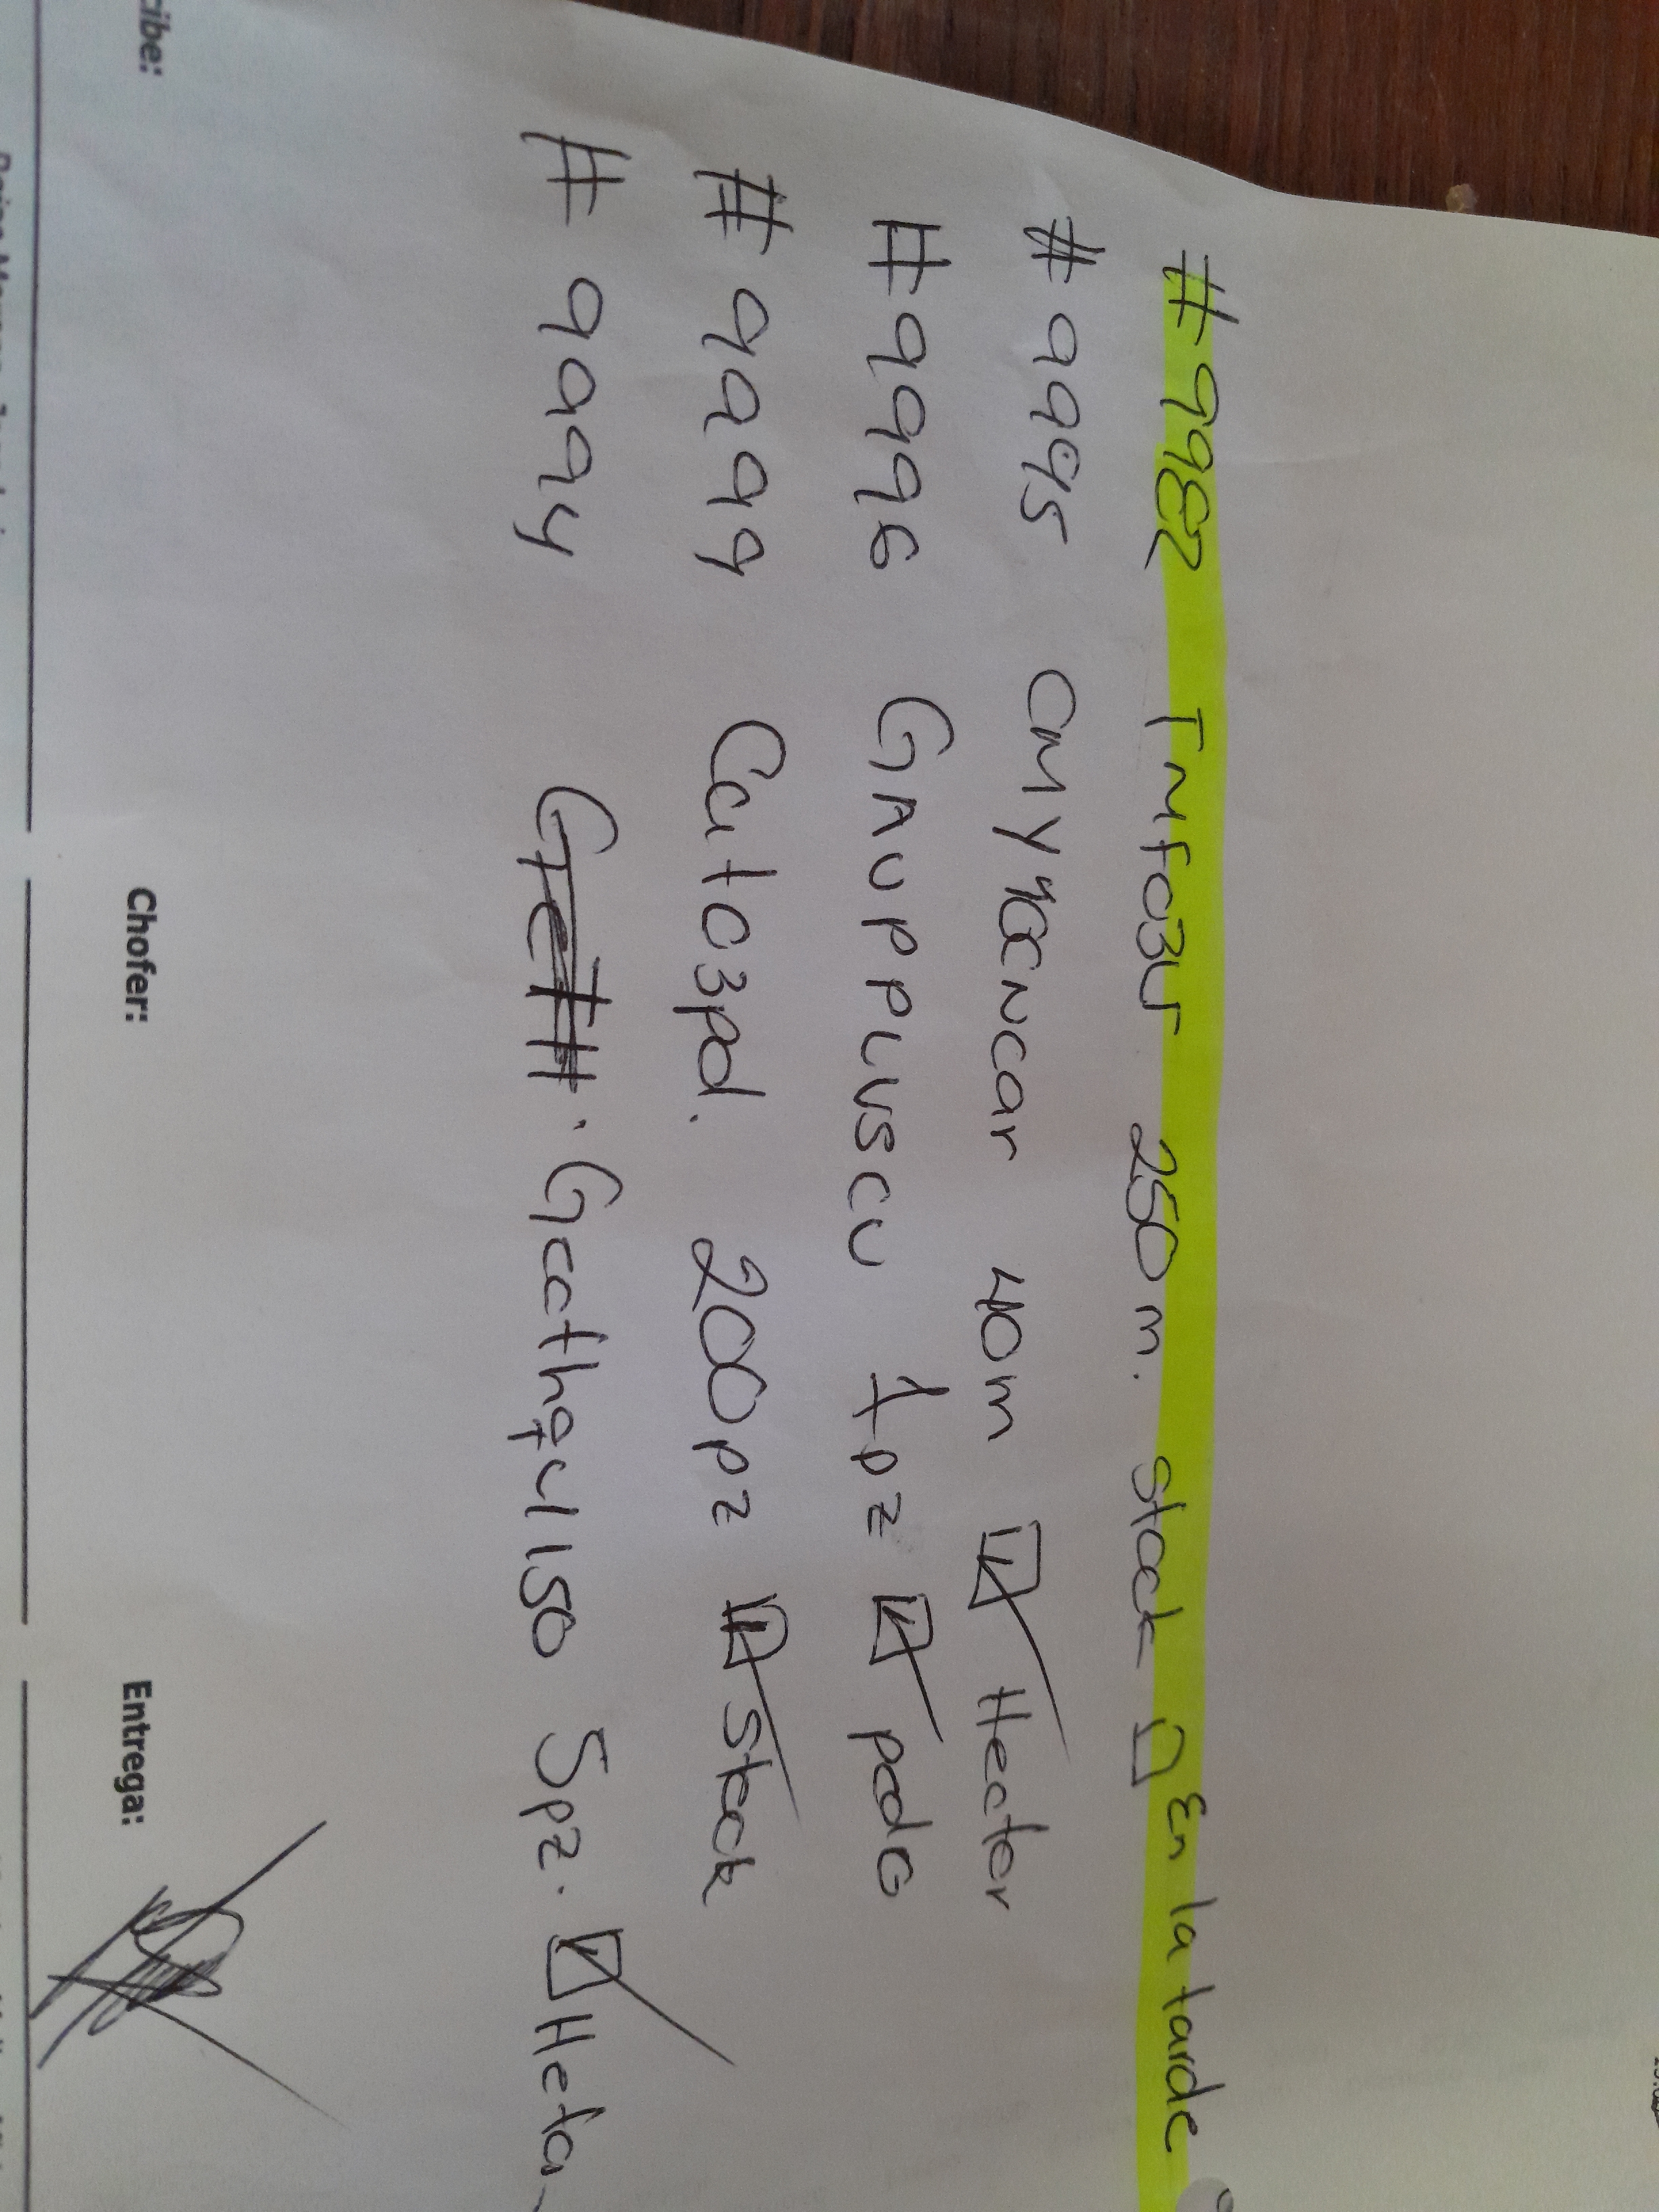 #9982 Tmfo3ur 250 m. stock □ En la tarde
#9995 CMYYOCNCar 40m ☑ Hector
#9996 GAUPPLUSCU 1pz ☑ pedo
#9999 Cuto3pd. 200pz ☑ Stock
#9994 Gccthq4150 5pz. ☑ Hector
Chofer:
Entrega: